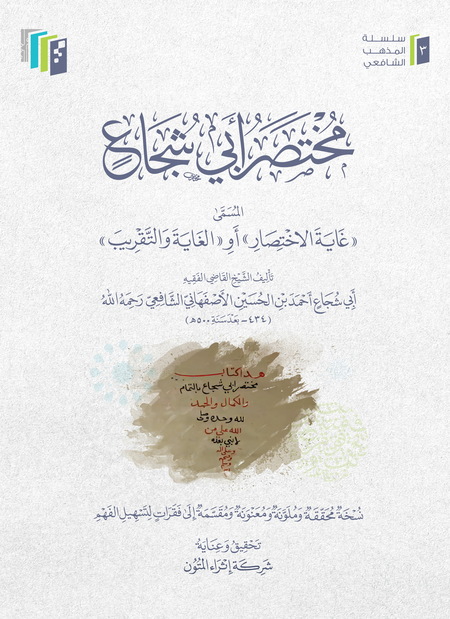 سلسلة
المذهب
الشافعي
٣
مُخْتَصَرُ أَبِي شُجَاعٍ
المُسَمَّى
«غَايَةَ الاخْتِصَارِ» أَوِ «الغَايَةَ وَالتَّقْرِيبَ»
تَأْلِيفُ الشَّيْخِ القَاضِي الفَقِيهِ
أَبِي شُجَاعٍ أَحْمَدَ بْنِ الحُسَيْنِ الأَصْفَهَانِيِّ الشَّافِعِيِّ رَحِمَهُ اللهُ
(٤٣٤- بَعْدَ سَنَةِ ٥٠٠هـ)
هذا كتاب
مختصر ابي شجاع بالتمام
والكمال والحمد
لله وحده وصلى
الله على من
لا نبي بعده
نُسْخَةٌ مُحَقَّقَةٌ وَمُلَوَّنَةٌ وَمُعَنْوَنَةٌ وَمُقَسَّمَةٌ إِلَى فَقَرَاتٍ لِتَسْهِيلِ الفَهْمِ
تَحْقِيقُ وَعِنَايَةُ
شَرِكَة إِثْرَاءِ المُتُونِ